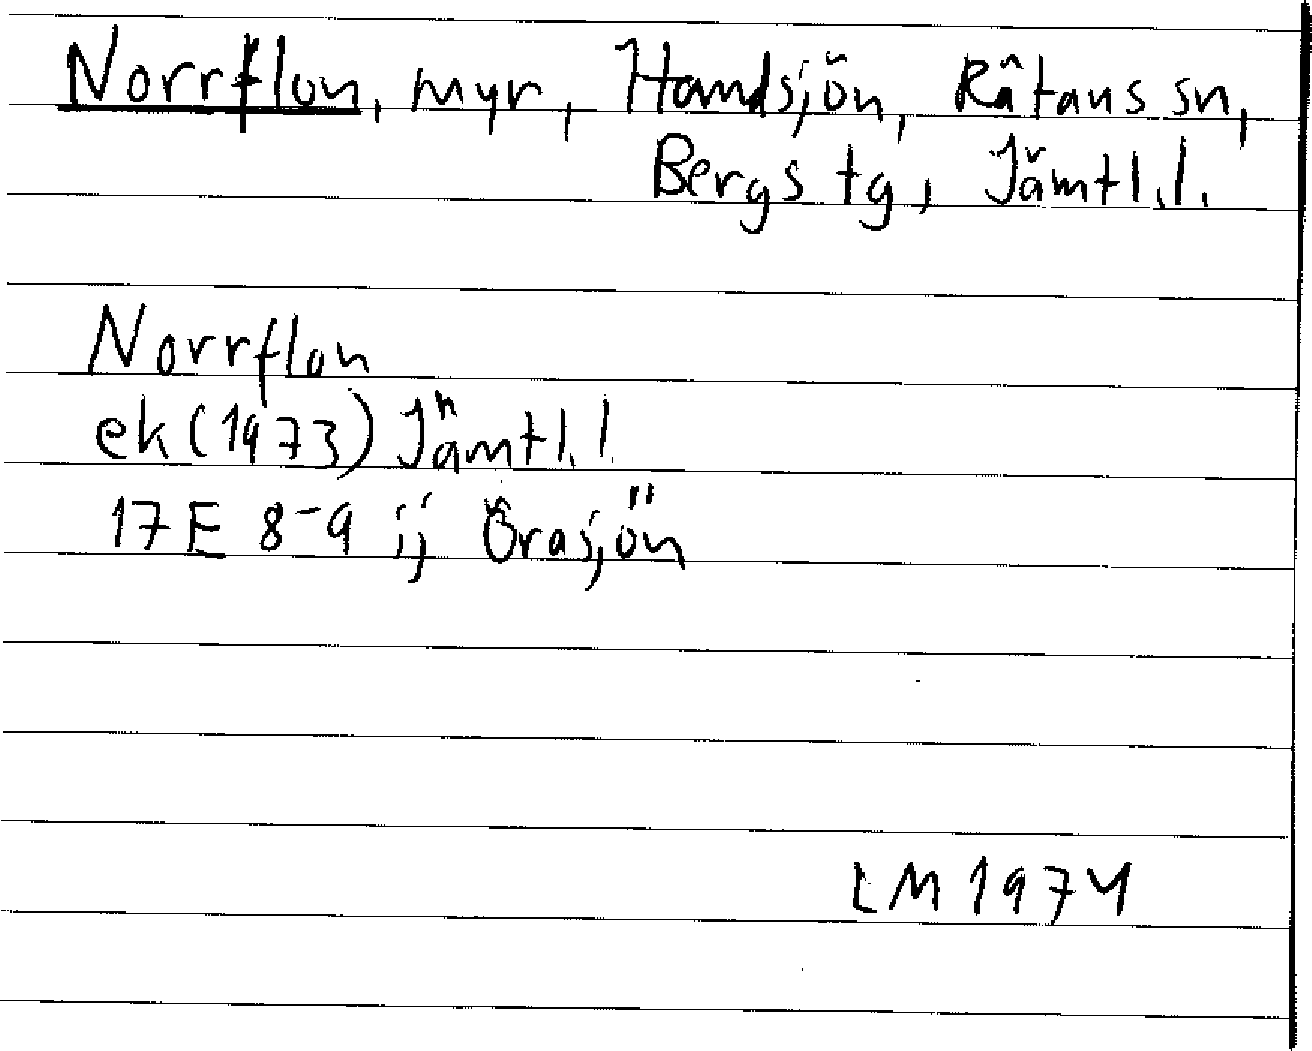 Norrflon, myr, Handsjön, Råtans sn,
Bergs tg, Jämtl.l.
Norrflon
ek (1973) Jämtl.l.
17E 8-9 ij Örasjön
LM 1974